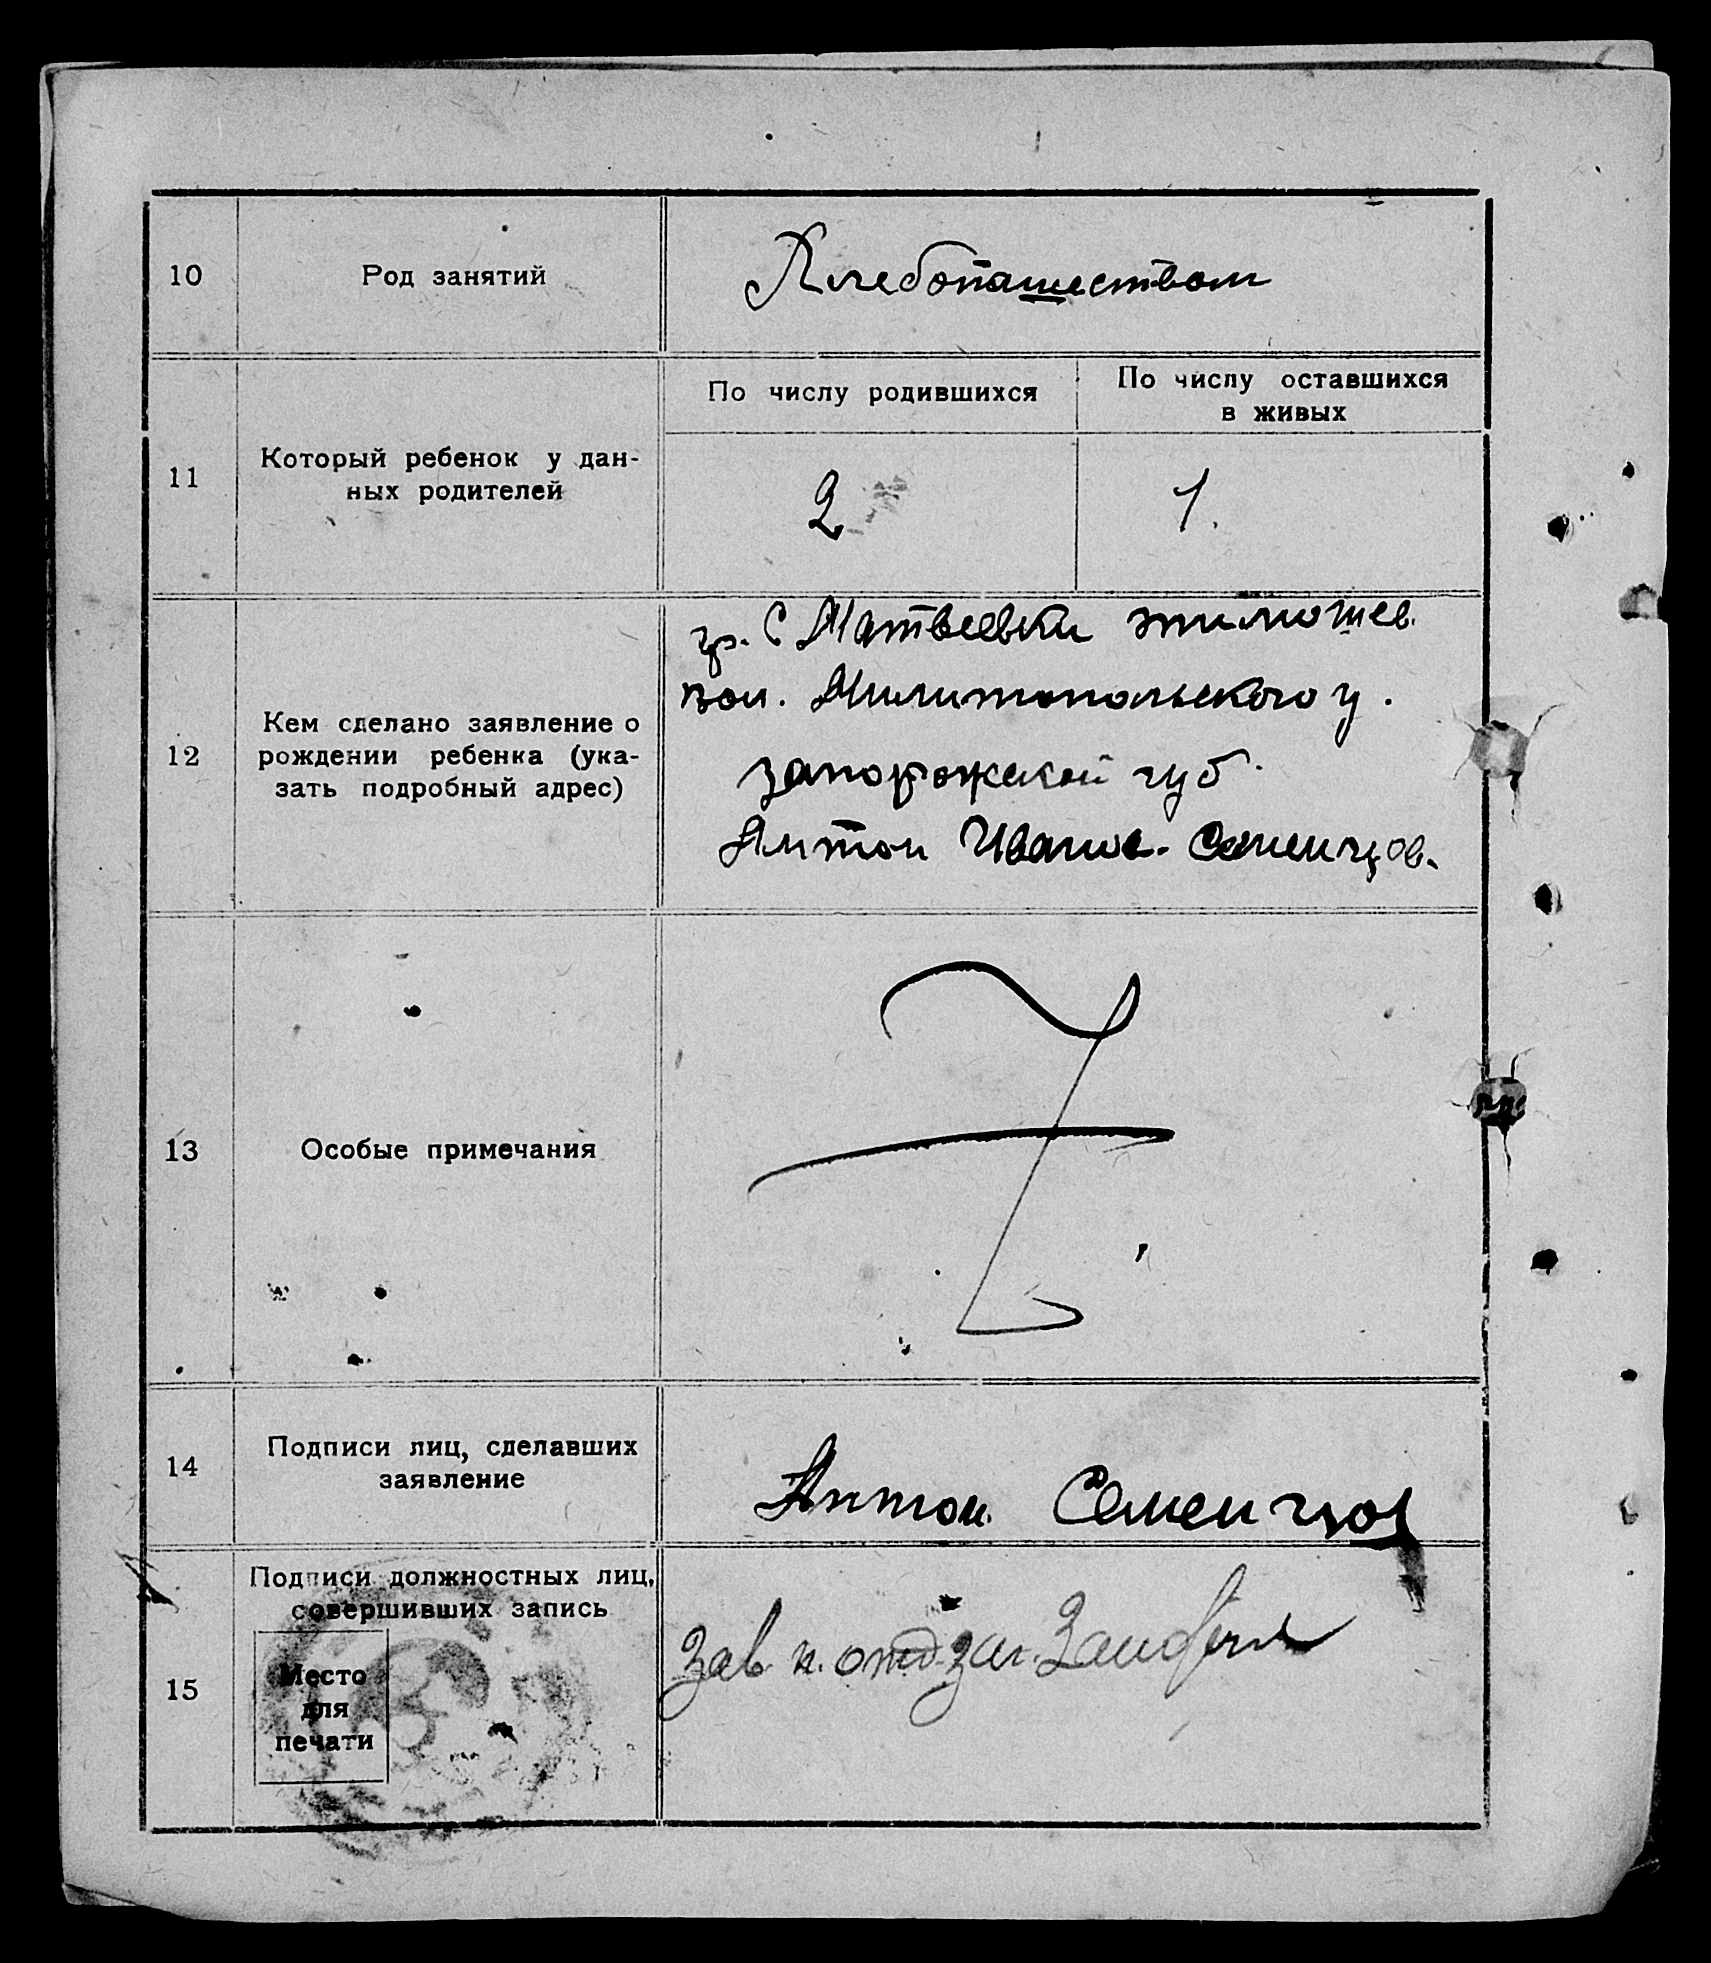 10
Род занятий
Хлебопашеством
11
Который ребенок у дан-
ных родителей
По числу родившихся
По числу оставшихся
в живых
2
1.
12
Кем сделано заявление о
рождении ребенка (ука-
зать подробный адрес)
гр. С Матвеевки
вол. Милитопольского у.
запорожской губ.
Антон Иванов. Семенцов.
13
Особые примечания
14
Подписи лиц, сделавших
заявление
Антон Семенцов
15
Подписи должностных лиц,
совершивших запись
Место
для
печати
Зав. п. отд. заг.